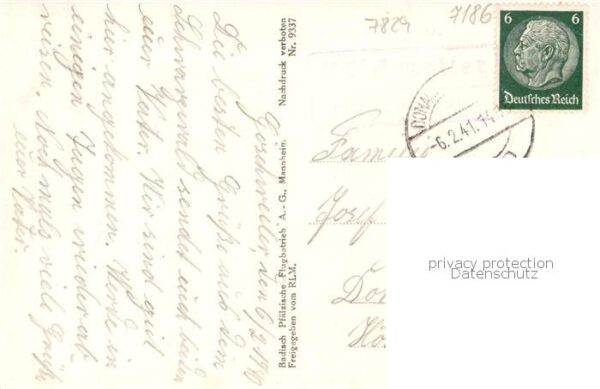 7829
7186
6 6
Deutsches Reich
DONA
-6.2.41.14
Göschweiler, den 6/2 1941
Die besten Grüße aus dem
Schwarzwald sendet euch
euer Vater. Wir sind gut
hier angekommen. Werde in
einigen Tagen wieder ab-
reisen. Nochmals viele Grüße
euer Vater.
Badisch Pfälzische Flugbetrieb A.-G., Mannheim. Nachdruck verboten
Freigegeben vom RLM. Nr. 9337
Familie
Josef
privacy protection
Datenschutz